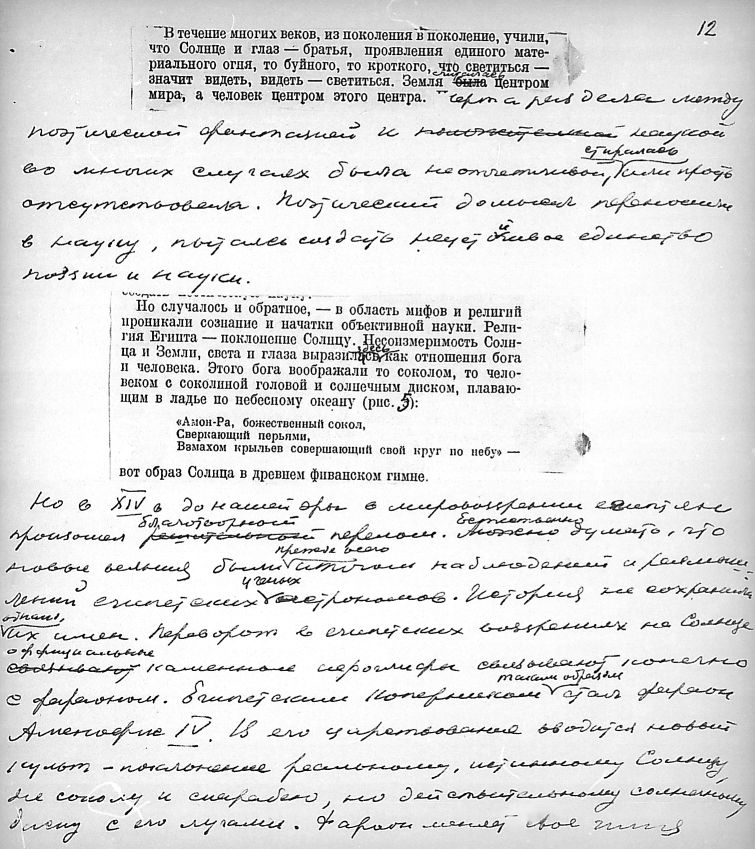 12
В течение многих веков, из поколения в поколение, учили,
что Солнце и глаз — братья, проявления единого мате-
риального огня, то буйного, то кроткого, что светиться —
значит видеть, видеть — светиться. Земля считалась была центром
мира, а человек центром этого центра. Черта раздела между
поэтической фантазией и положительной наукой
стиралась
во многих случаях была неотчетливой, или просто
отсутствовала. Поэтический домысел переносили
в науку, пытаясь создать неустойчивое единство
поэзии и науки.
создать поэтическую науку.
Но случалось и обратное, — в область мифов и религий
проникали сознание и начатки объективной науки. Рели-
гия Египта — поклонение Солнцу. Несоизмеримость Солн-
ца и Земли, света и глаза выразилась здесь как отношения бога
и человека. Этого бога воображали то соколом, то чело-
веком с соколиной головой и солнечным диском, плаваю-
щим в ладье по небесному океану (рис. 5):
«Амон-Ра, божественный сокол,
Сверкающий перьями,
Взмахом крыльев совершающий свой круг по небу» —
вот образ Солнца в древнем фиванском гимне.
Но в XIV в до нашей эры в мировоззрении египтян
благотворный Естественно
произошел решительный перелом. Можно думать, что
прежде всего
новые веяния были итогом наблюдений и размыш-
ученых
лений египетских астрономов. История не сохранила
однако,
их имен. Переворот в египетских воззрениях на Солнце
оффициальные
связывают каменные иероглифы связывают конечно
таким образом
с фараоном. Египетским Коперником стал фараон
Аменофис IV. В его царствование вводится новый
культ – поклонение реальному, истинному Солнцу,
не соколу и скарабею, но действительному солнечному
диску с его лучами. Фараон меняет свое имя